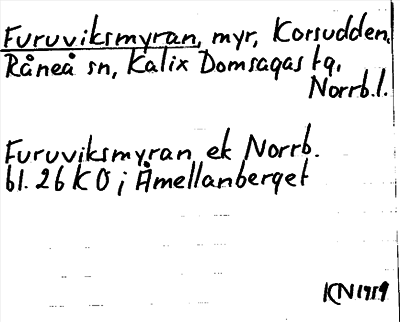 Furuviksmyran, myr, Korsudden,
Råneå sn, Kalix Domsagas tg,
Norrb.l.
Furuviksmyran ek Norrb.
bl. 26 K O i Åmellanberget
KN 1959